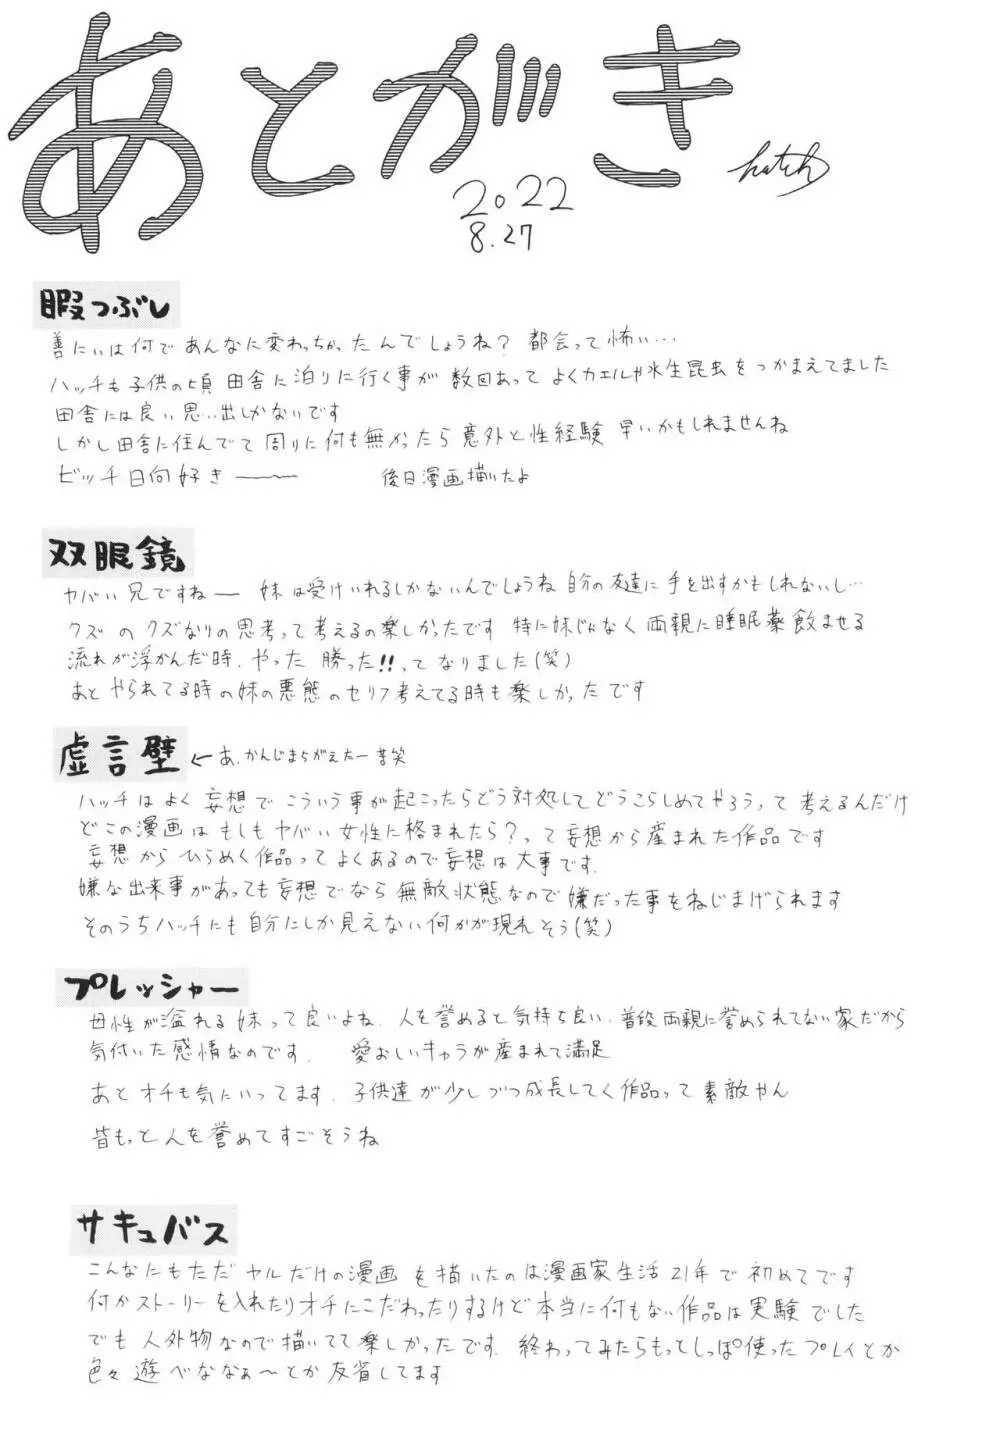 あとがき
hatch
2022
8.27
暇つぶし
善にいは何であんなに変わっちゃったんでしょうね? 都会って怖い…
ハッチも子供の頃 田舎に泊りに行く事が 数回あって よくカエルや水生昆虫をつかまえてました
田舎には良い思い出しかないです
しかし田舎に住んでて 周りに何も無かったら 意外と性経験 早いかもしれませんね
ビッチ日向好き〜 後日漫画描いたよ
双眼鏡
ヤバい兄ですねー 妹は受けいれるしかないんでしょうね 自分の友達に手を出すかもしれないし…
クズのクズなりの思考って考えるの楽しかったです 特に妹じゃなく両親に睡眠薬飲ませる
流れが浮かんだ時、やった 勝った!!ってなりました(笑)
あと やられてる時の妹の悪態のセリフ考えてる時も楽しかったです
虚言壁 ← あ、かんじまちがえたー苦笑
ハッチはよく妄想でこういう事が起こったらどう対処してどうこらしめてやろうって考えるんだけ
どこの漫画はもしもヤバい女性に絡まれたら?って妄想から産まれた作品です
妄想からひらめく作品ってよくあるので妄想は大事です、
嫌な出来事があっても妄想でなら無敵状態なので嫌だった事をねじまげられます
そのうちハッチにも自分にしか見えない何かが現れそう(笑)
プレッシャー
母性が溢れる妹って良いよね、人を誉めると気持ち良い、普段両親に誉められてない家だから
気付いた感情なのです、 愛おしいキャラが産まれて満足
あとオチも気にいってます、子供達が少しづつ成長してく作品って素敵やん
皆もっと人を誉めてすごそうね
サキュバス
こんなにもただヤルだけの漫画を描いたのは漫画家生活21年で初めてです
何かストーリーを入れたりオチにこだわったりするけど本当に何もない作品は実験でした
でも人外物なので描いてて楽しかったです、終わってみたらもっとしっぽ使ったプレイとか
色々遊べたなぁ〜とか反省してます